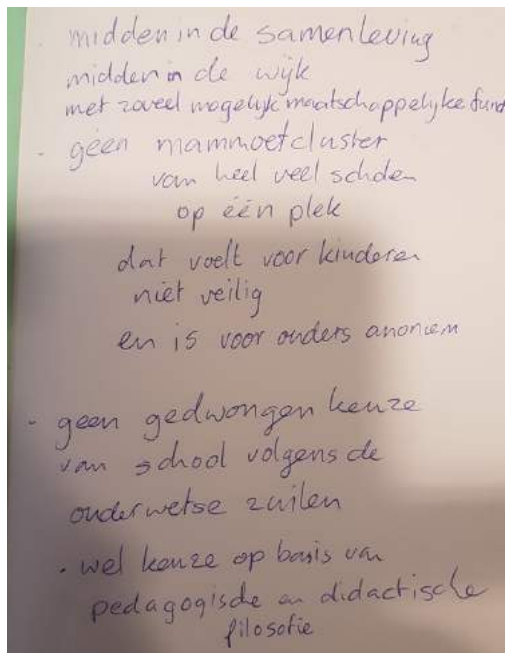 - midden in de samenleving
midden in de wijk
met zoveel mogelijk maatschappelijke funct
- geen mammoetcluster
van heel veel scholen
op één plek
dat voelt voor kinderen
niet veilig
en is voor ouders anoniem
- geen gedwongen keuze
van school volgens de
ouderwetse zuilen
. wel keuze op basis van
pedagogische en didactische
filosofie